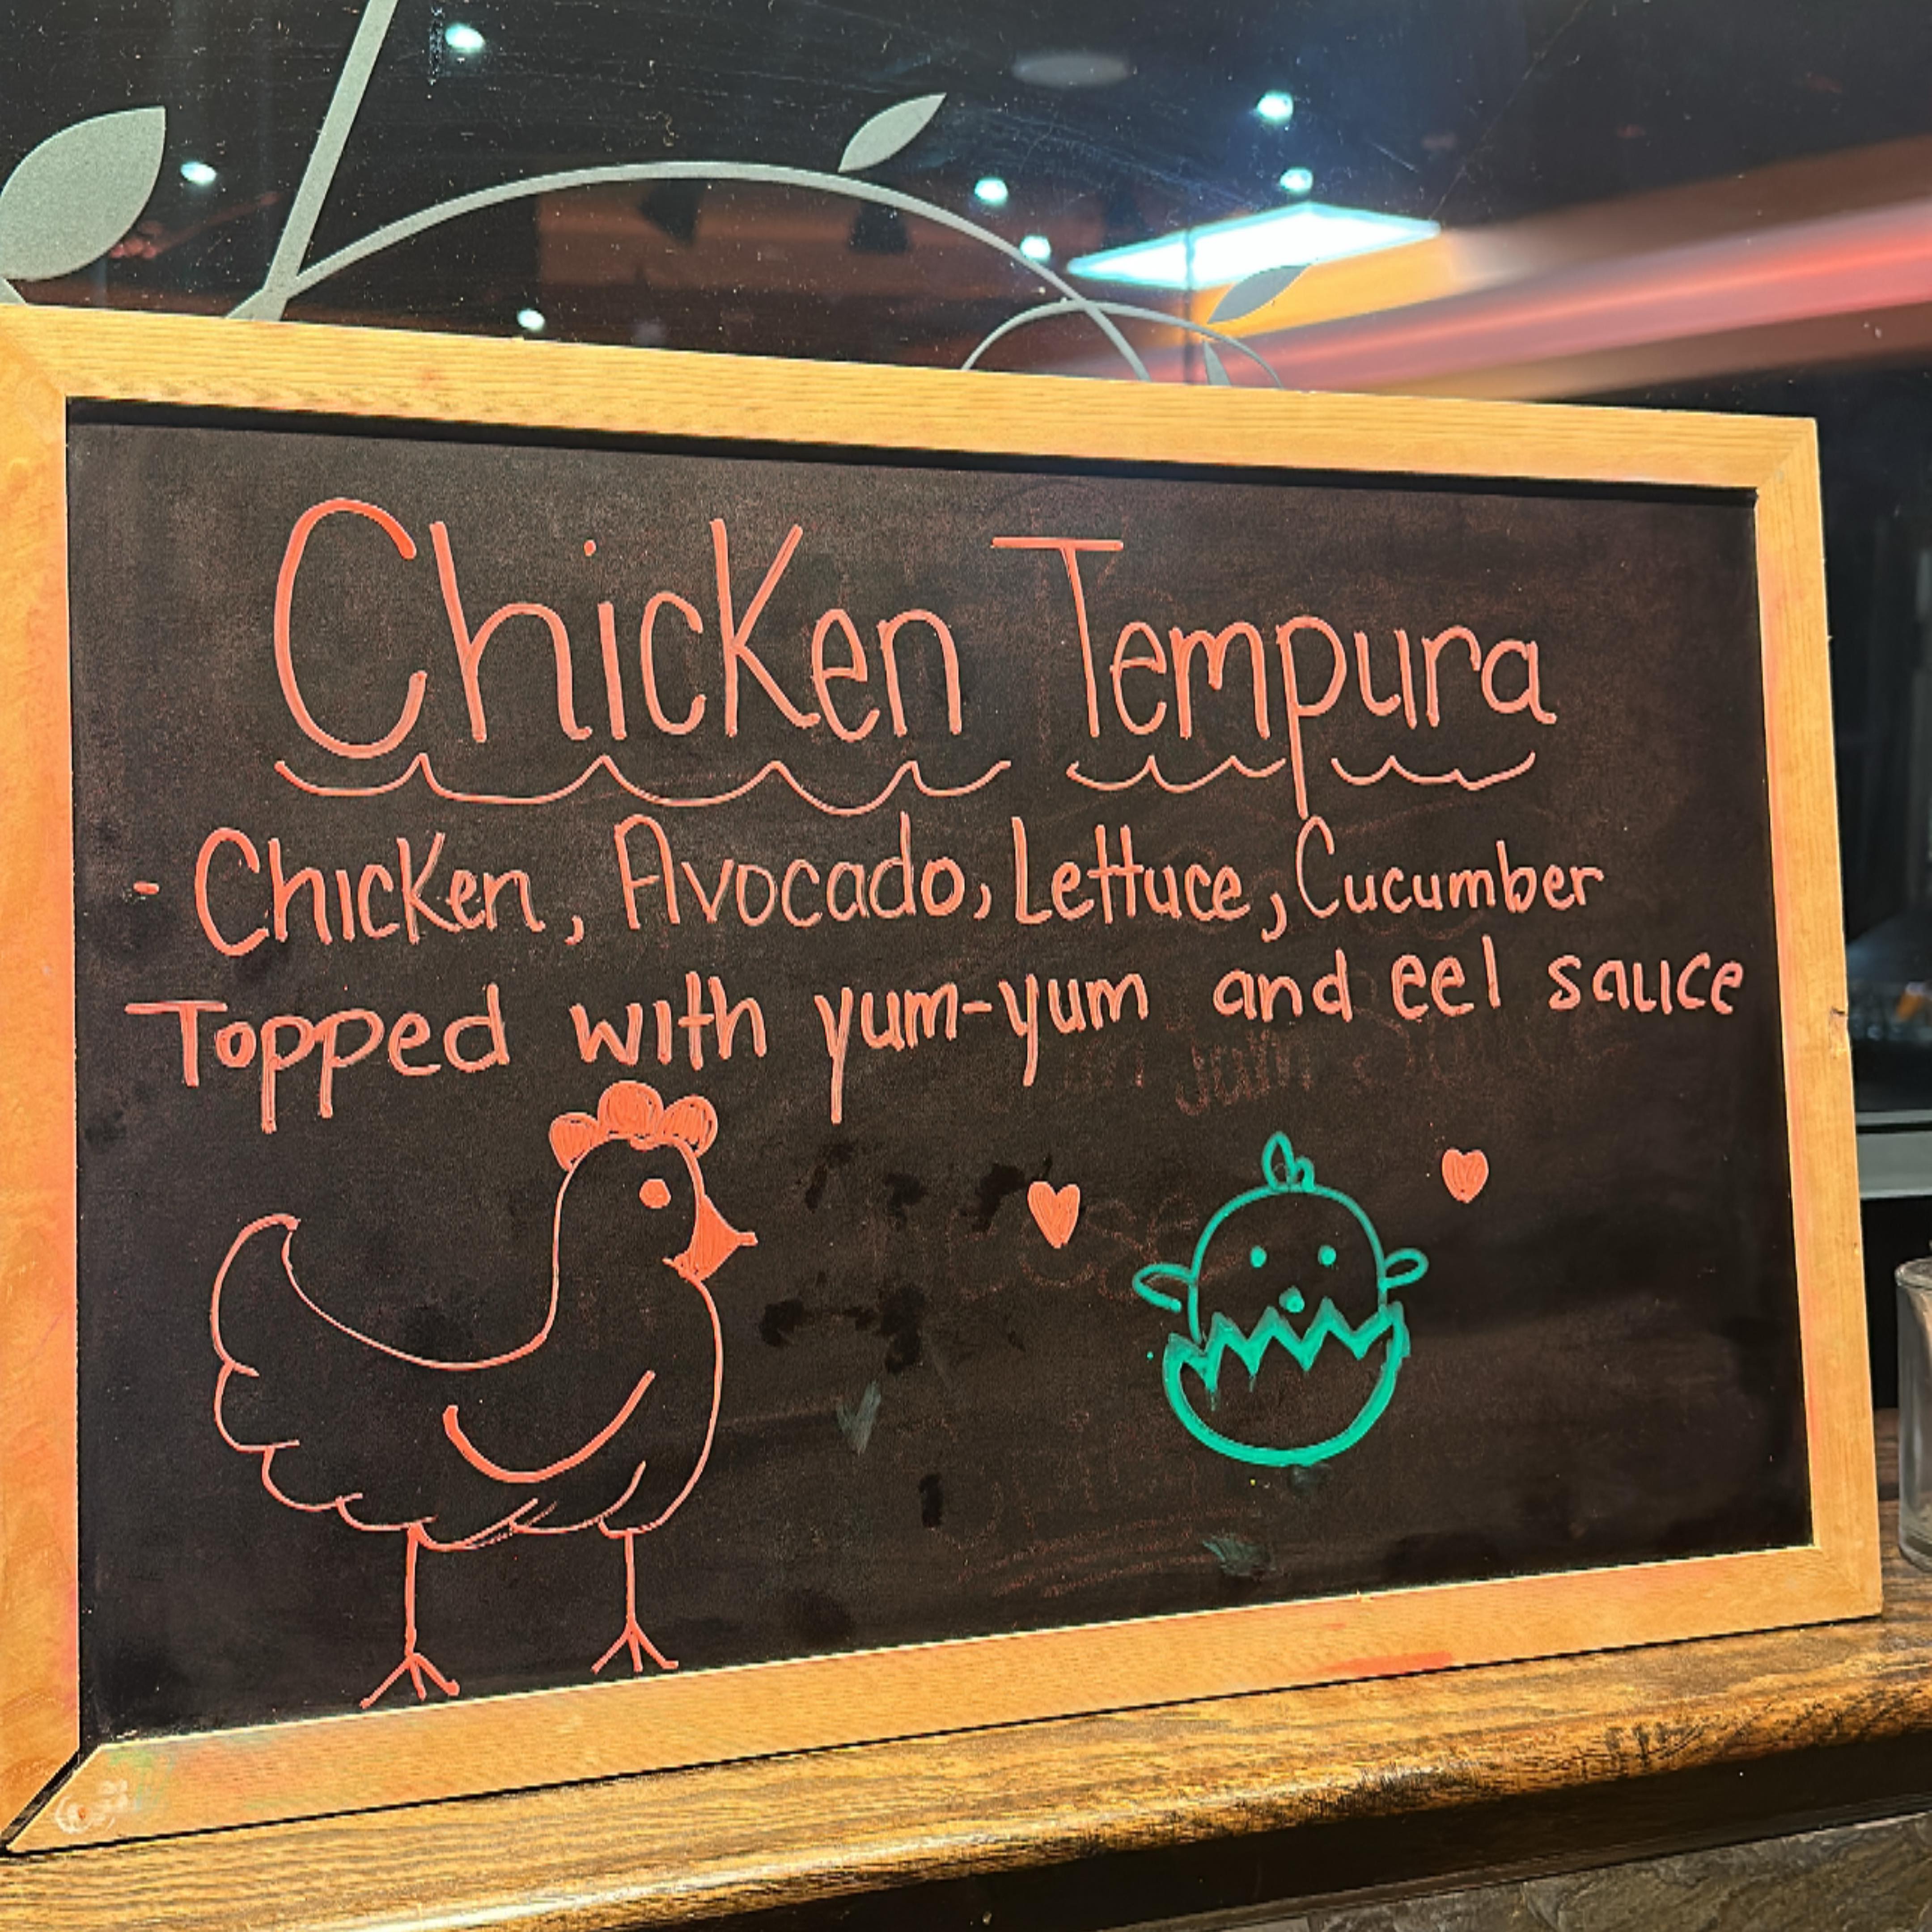 Chicken Tempura
- Chicken, Avocado, Lettuce, Cucumber
Topped with yum-yum and eel sauce